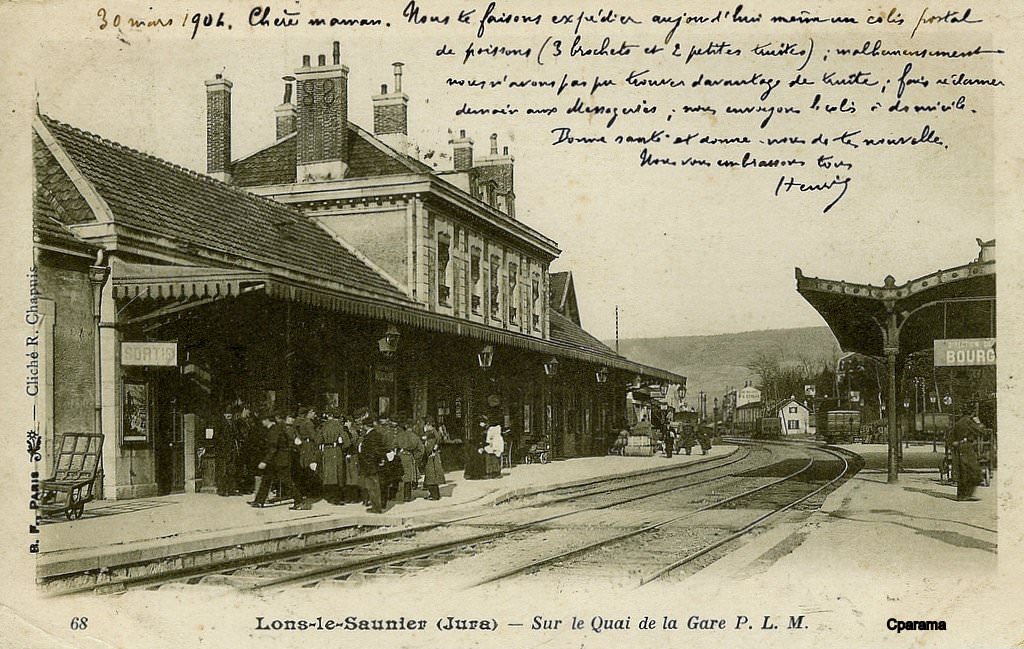 30 mars 1904. Chère maman. Nous te faisons expédier aujourd'hui même un colis postal
de poissons (3 brochets et 2 petites truites) ; malheureusement
nous n'avons pas pu trouver davantage de truite ; fais réclamer
demain aux Messageries ; nous envoyons le colis à domicile.
Bonne santé et donne-nous de te nouvelle.
Nous vous embrassons tous
Henri
SORTIE
BOURG
B. F. PARIS — Cliché R. Chapuis
68 Lons-le-Saunier (Jura) — Sur le Quai de la Gare P. L. M.
Cparama